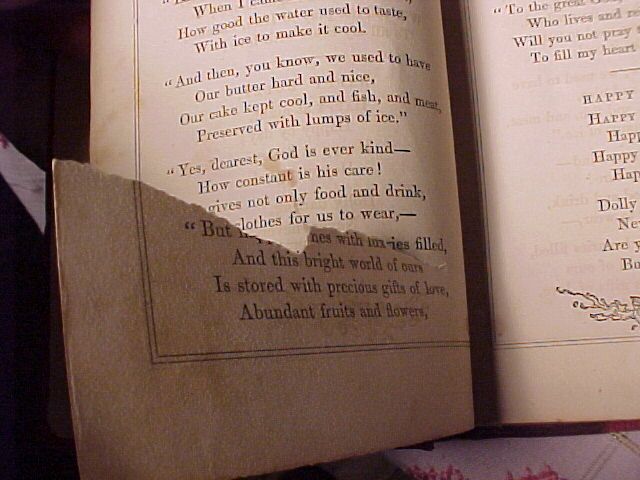 When I came
How good the water used to taste,
With ice to make it cool.
"And then, you know, we used to have
Our butter hard and nice,
Our cake kept cool, and fish, and meat,
Preserved with lumps of ice."
"Yes, dearest, God is ever kind—
How constant is his care!
gives not only food and drink,
clothes for us to wear,—
"But nes with lux-ies filled,
And this bright world of ours
Is stored with precious gifts of love,
Abundant fruits and flowers,
"To the great
Who lives and re
Will you not pray
To fill my heart
HAPPY
HAPPY
Hap
Happy
Hap
Dolly
Ne
Are y
Bo